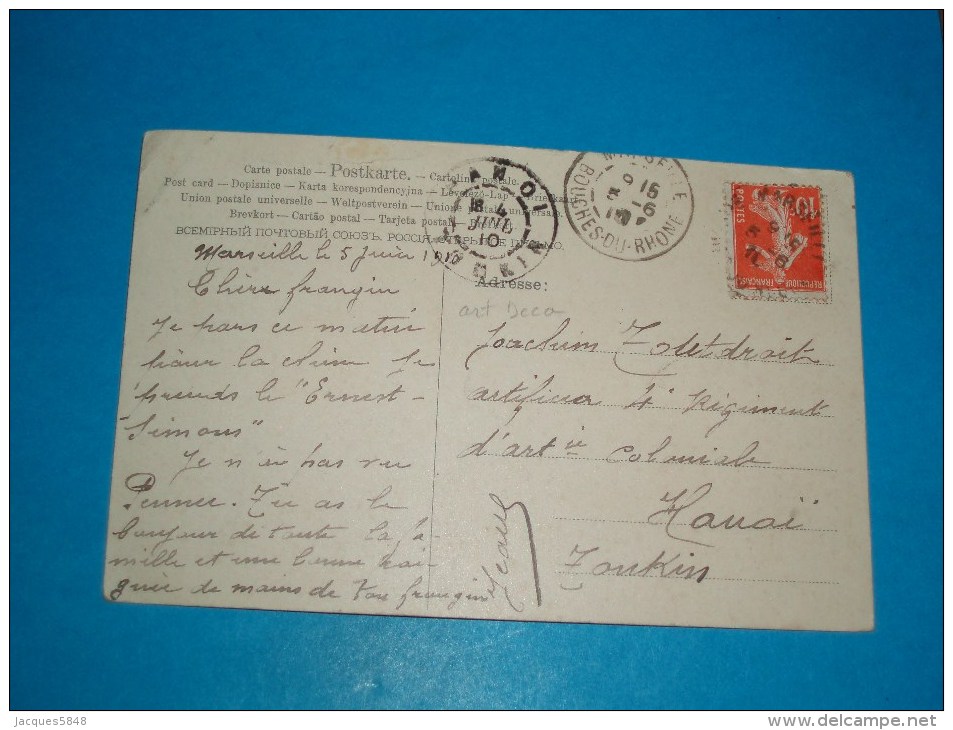 Carte postale — Postkarte. — Cartolina postale.
Post card — Dopisnice — Karta korespondencyjna — Levelező-Lap — Briefkaart
Union postale universelle — Weltpostverein — Unione postale universale.
Brevkort — Cartão postal — Tarjeta postal
ВСЕМІРНЫЙ ПОЧТОВЫЙ СОЮЗЪ. РОССІЯ. ОТКРЫТОЕ ПИСЬМО.
Marseille le 5 Juin 1910
Chère frangin
Je pars ce matin
pour la chine je
prends le "Ernest-
Simons"
Je n'ai pas vu
Tu as le
bonjour de toute la fa-
mille et une bonne poi-
gnée de mains de Ton frangin
Jean
Adresse:
art Deco
Joachim
artificier 4e Régiment
d'artie coloniale
Hanoï
Tonkin
HANOI
TONKIN
8-4
JUIL
10
MARSEILLE
9 15
5 -6
BOUCHES-DU-RHONE
10c
POSTES
REPUBLIQUE FRANÇAISE
Jacques5848
www.delcampe.net